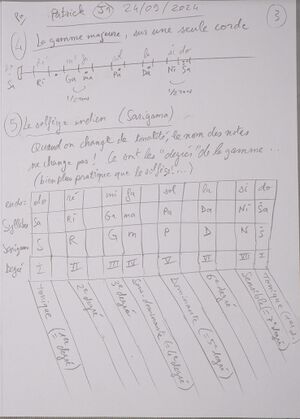 Patrick J1 24/05/2024
③
④ La gamme majeure, sur une seule corde
do ré mi fa sol la si do
Sa Ri Ga ma Pa Da Ni Sa
1/2 ton 1/2 ton
⑤ Le solfège indien (Sarigama)
Quand on change de tonalité, le nom des notes
ne change pas ! Ce sont les "degrés" de la gamme...
(bien plus pratique que le solfège !...)
do ré mi fa sol la si do
Syllabe Sa Ri Ga ma Pa Da Ni Sa
Sarigama S R G m P D N S
Degré I II III IV V VI VII I
Tonique (= 1er degré)
2e degré
3e degré
Sous dominante (= 4e degré)
Dominante (= 5e degré)
6e degré
Sensible (= 7e degré)
Tonique